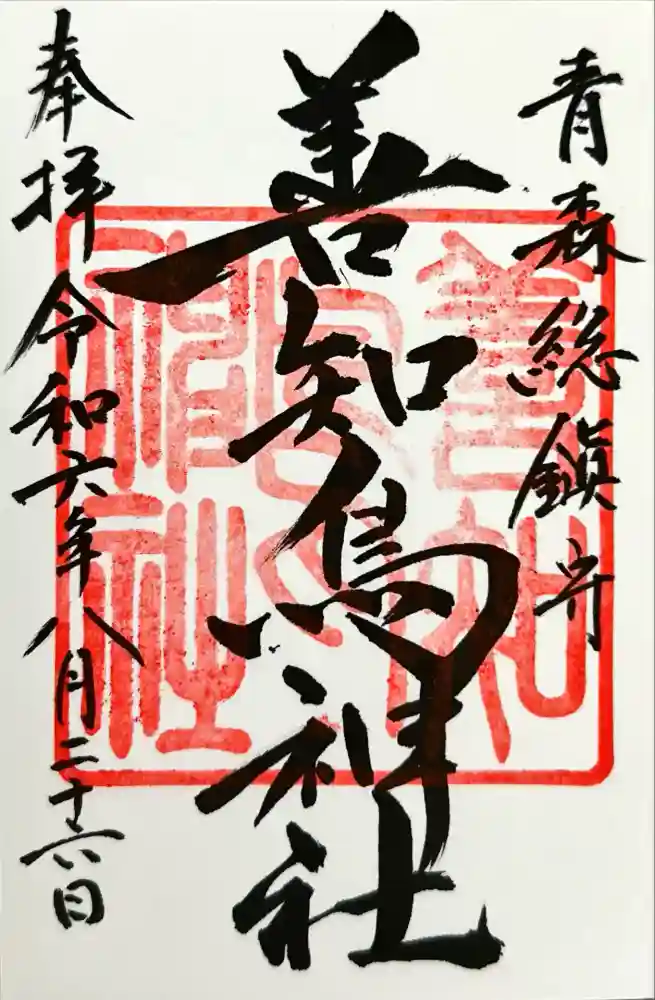 青森総鎮守
善知鳥神社
奉拝令和六年八月二十六日
善知鳥神社